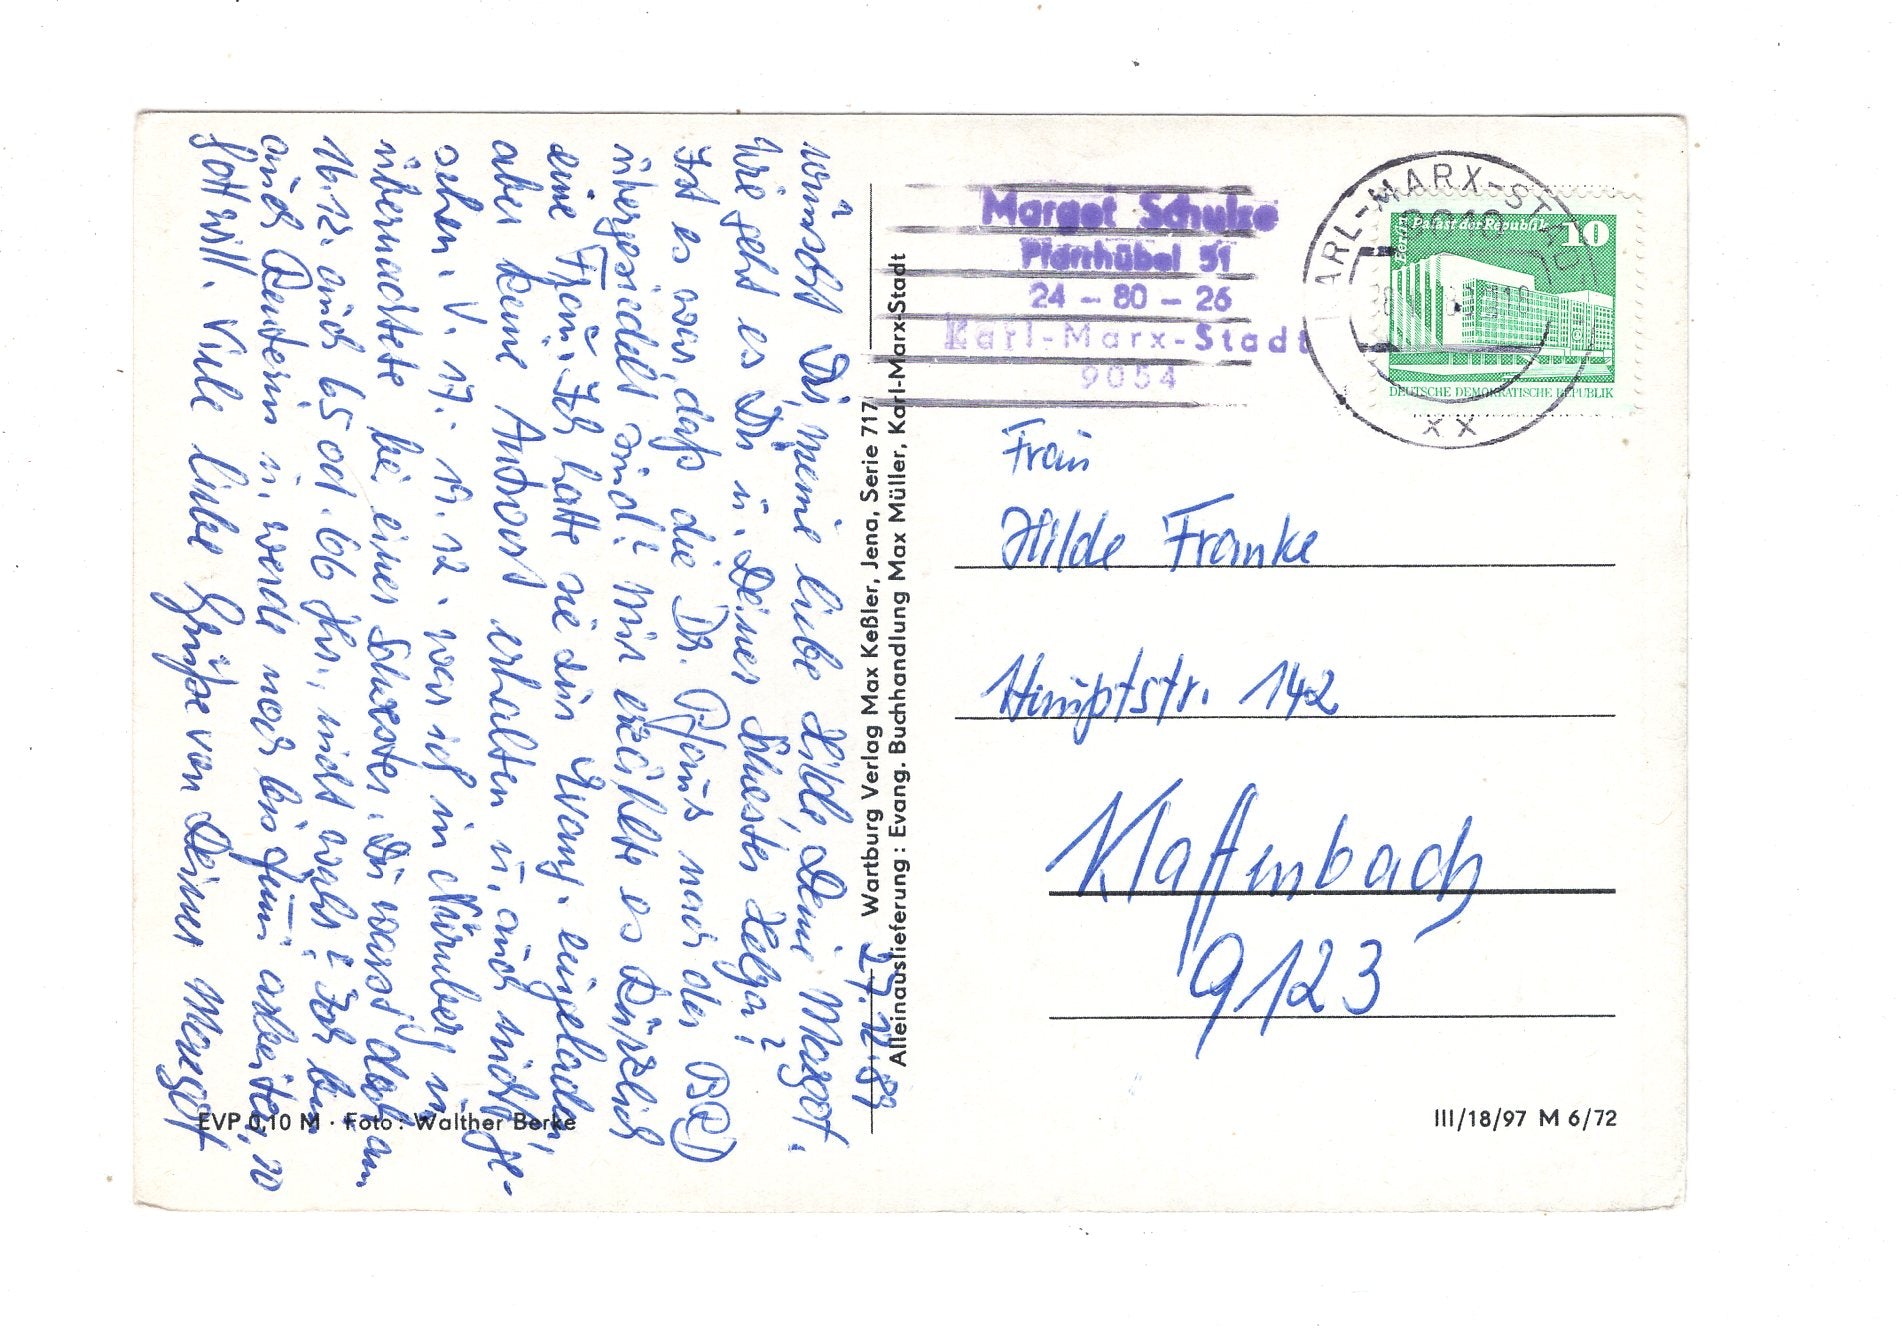 27.12.89
wünscht Dir, meine liebe Hilde, Deine Margot.
Wie geht es Dir u. Deiner Schwester Helga?
Ist es wahr, daß die Dr. Pfaus nach der BRD
übergesiedelt sind? Mir erzählte es kürzlich
eine Frau. Ich hatte sie zur Evang. eingeladen,
aber keine Antwort erhalten u. auch nicht ge-
sehen. V. 17.-19.12. war ich in Nürnberg u.
übernachtete bei einer Schwester. Du warst doch am
16.12. auch 65 od. 66 Jhr., nicht wahr? Ich bin
auch Rentnerin u. werde noch bis Juni arbeiten, so
Gott will. Viele liebe Grüße von Deiner Margot
Wartburg Verlag Max Keßler, Jena, Serie 717
Alleinauslieferung: Evang. Buchhandlung Max Müller, Karl-Marx-Stadt
EVP 0,10 M · Foto: Walther Berke
Margot Schulze
Pfarrhübel 51
24 – 80 – 26
Karl-Marx-Stadt
9054
KARL-MARX-STADT
9010
XX
Berlin
Palast der Republik
10
DEUTSCHE DEMOKRATISCHE REPUBLIK
Frau
Hilde Franke
Hauptstr. 142
Klaffenbach
9123
III/18/97 M 6/72